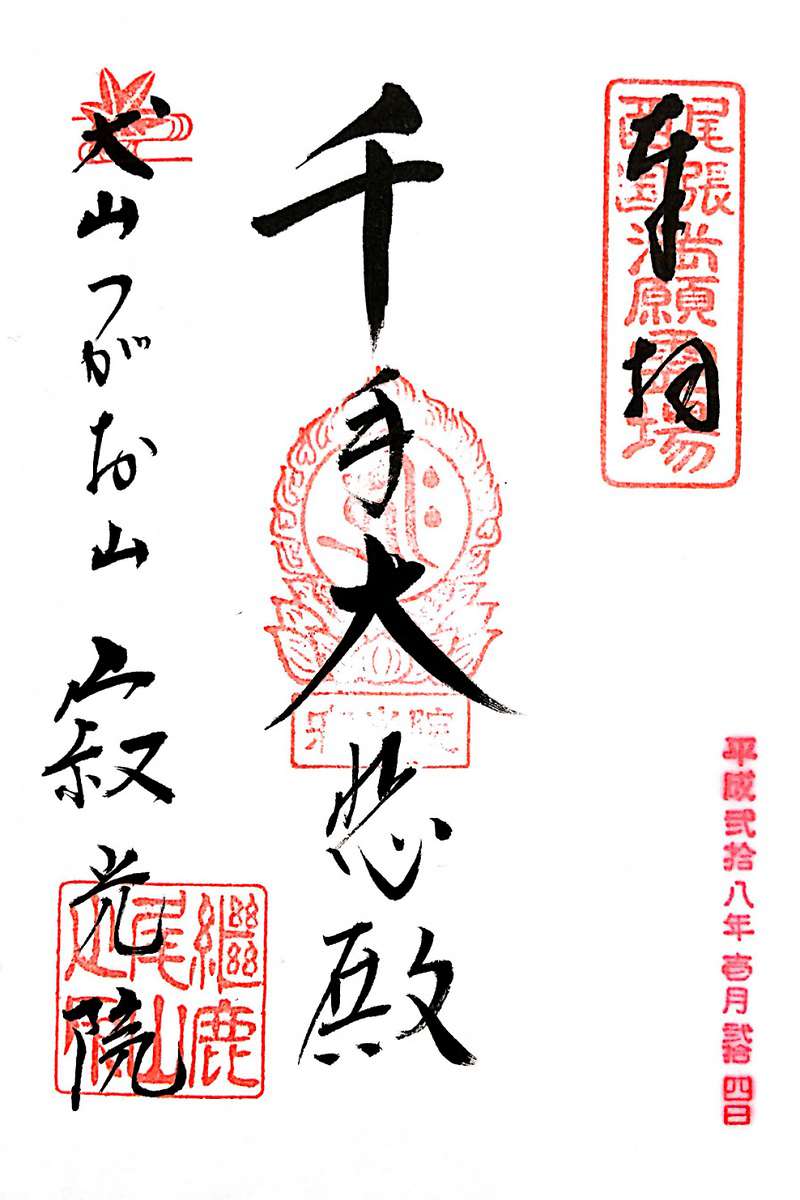 奉拝
尾張
西国満願霊場
平成弐拾八年壱月弐拾四日
千手大悲殿
犬山つがお山 寂光院
継鹿
尾山